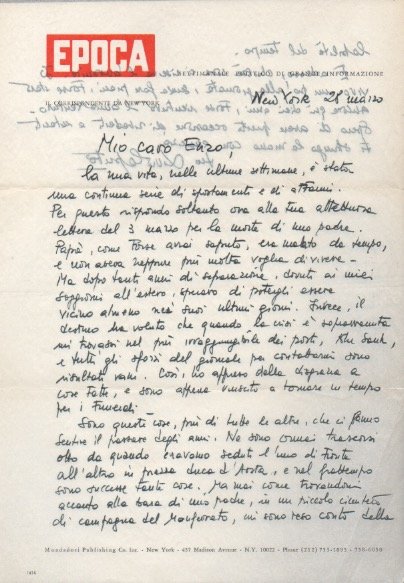 EPOCA
SETTIMANALE POLITICO DI GRANDE INFORMAZIONE
IL CORRISPONDENTE DA NEW YORK
New York 28 marzo
Mio caro Enzo,
la mia vita, nelle ultime settimane, è stata
una continua serie di spostamenti e di affanni.
Per questo rispondo soltanto ora alla tua affettuosa
lettera del 3 marzo per la morte di mio padre.
Papà, come forse avrai saputo, era malato da tempo,
e non aveva neppure più molta voglia di vivere -
Ma dopo tanti anni di separazione, dovuti ai miei
soggiorni all'estero, speravo di potergli essere
vicino almeno nei suoi ultimi giorni. Invece, il
destino ha voluto che quando la crisi è sopravvenuta
mi trovassi nel più irraggiungibile dei posti,
e tutti gli sforzi del giornale per contattarmi sono
risultati vani. Così, ho appreso della disgrazia a
cose fatte, e sono appena riuscito a tornare in tempo
per i funerali -
Sono queste cose, più di tutte le altre, che ci fanno
sentire il passare degli anni. Ne sono ormai trascorsi
otto da quando eravamo seduti l'uno di fronte
all'altro in piazza Duca d'Aosta, e nel frattempo
sono successe tante cose. Ma mai come trovandomi
accanto alla bara di mio padre, in un piccolo cimitero
di campagna del Monferrato, mi sono reso conto della
Mondadori Publishing Co. Inc. - New York - 437 Madison Avenue - N.Y. 10022 - Phone (212) 753-1895 - 758-6050